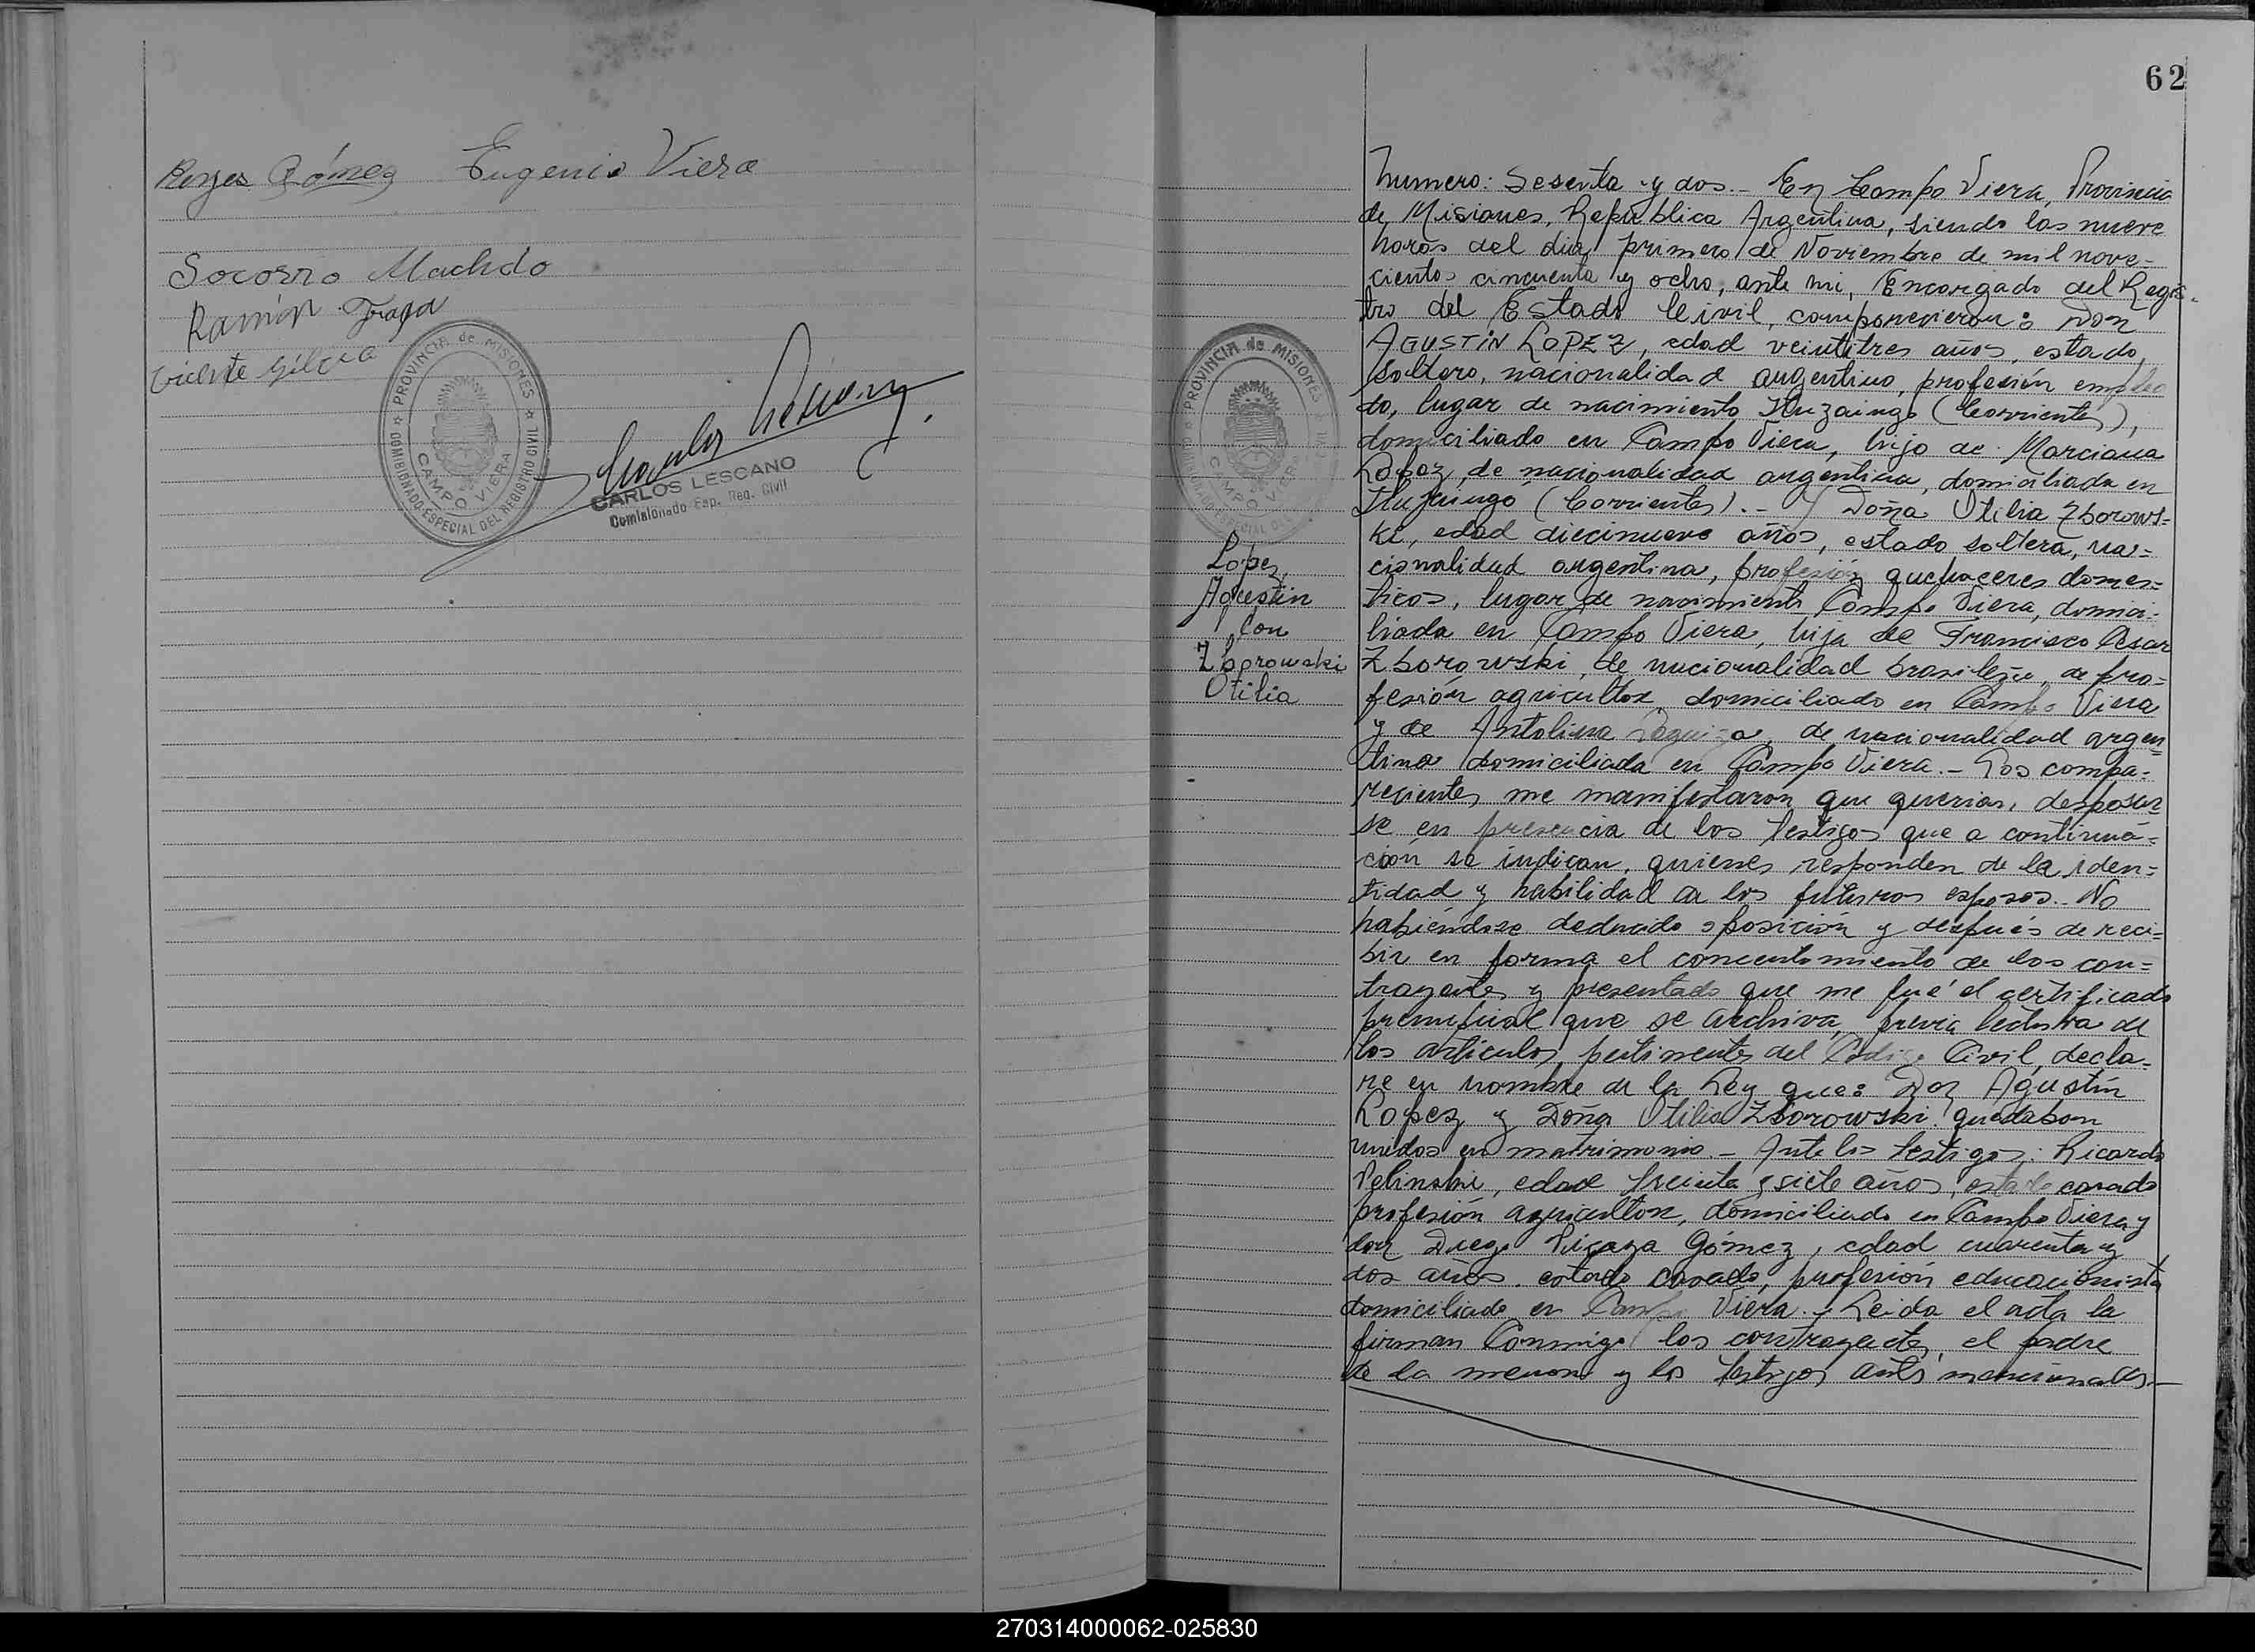 Reyes Gómez Eugenio Viera
Socorro Machdo
Ramón Fraga
Vicente Silva
PROVINCIA de MISIONES
CAMPO VIERA
COMISIONADO ESPECIAL DEL REGISTRO CIVIL
CARLOS LESCANO
Comisionado Esp. Reg. Civil
62
PROVINCIA de MISIONES
CAMPO VIERA
Lopez
Agustin
Con
Zborowski
Otilia
Numero: Sesenta y dos.- En Campo Viera, Provincia
de Misiones, República Argentina, siendo las nueve
horas del dia primero de Noviembre de mil nove-
cientos cincuenta y ocho, ante mi, Encargado del Regis-
tro del Estado Civil, comparecieron: Don
AGUSTIN LOPEZ, edad veintitres años, estado
soltero, nacionalidad argentino, profesión emplea
do, lugar de nacimiento Ituzaingo (Corrientes),
domiciliado en Campo Viera, hijo de Marciana
Lopez, de nacionalidad argentina, domiciliada en
Ituzaingo (Corrientes).- Y Doña Otilia Zborows=
ki, edad diecinueve años, estado soltera, na=
cionalidad argentina, profesión quehaceres domes=
ticos, lugar de nacimiento Campo Viera, domici-
liada en Campo Viera, hija de Francisco Cesar
Zborowski, de nacionalidad brasileña, de pro=
fesión agricultor, domiciliado en Campo Viera
y de Antolina de nacionalidad argen=
tina domiciliada en Campo Viera.- Los compa=
recientes me manifestaron que querian, desposar
se en presencia de los testigos que a continua=
ción se indican, quienes responden de la iden=
tidad y habilidad de los futuros esposos.- No
habiéndose deducido oposición y después de reci=
bir en forma el concentimiento de los con=
trayentes y presentado que me fué el certificado
prenupcial que se archiva, previa lectura de
los articulos, pertinentes del Codigo Civil, decla-
re en nombre de la Ley que: Don Agustín
Lopez y Doña Otilia Zborowski quedaban
unidos en matrimonio.- Ante los testigos: Ricardo
edad treinta y siete años, estado casado
profesión agricultor, domiciliado en Campo Viera y
don Diego Gómez, edad cuarenta y
dos años, estado casado, profesión educacionista,
domiciliado en Campo Viera.- Leida el acta la
firman Conmigo los contrayentes, el padre
de la menor y los testigos antes mencionados.-
270314000062-025830